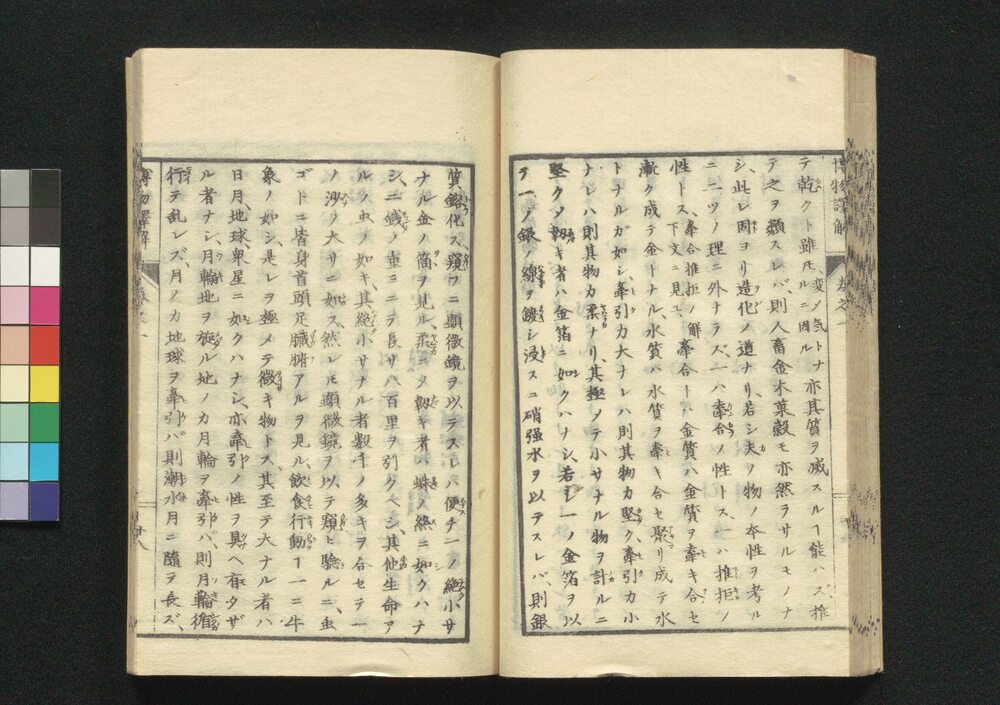 博物譯解 卷之一
テ乾クト雖𪜈、変メ気トナルニ因ル亦其質ヲ滅スルヿ能ハズ、推
テ之ヲ類スレバ則人畜金木菓穀モ亦然ラサルモノナ
シ、此レ固ヨリ造化ノ道ナリ若シ夫ノ物ノ本性ヲ考ル
ニ二ツノ理ニ外ナラズ、一ハ牽合ノ性トス、一ハ推拒ノ
性トス、牽合推拒ノ解下文ニ見ユ牽合トハ金質ハ金質ヲ牽キ合セ
漸ク成テ金トナル、水質ハ水質ヲ牽キ合セ聚リ成テ水
トナルガ如シ、牽引力大ナレハ則其物カ堅ク、牽引力小
ナレハ則其物カ柔ナリ、其極メテ小サナル物ヲ計ルニ
堅クメ靱キ者ハ金箔ニ如クハナシ、若シ一ノ金箔ヲ以
テ一ノ銀ノ線ヲ鍍シ浸スニ硝强水ヲ以テスレバ、則銀
質鎔化ス、窺フニ顯微鏡ヲ以テスレバ便チ一ノ絶小サ
ナル金ノ筒ヲ見ル、柔ニメ靱キ者ハ蛛ノ絲ニ如クハナ
シ、二錢ノ重ニテ長サ八百里ヲ引クヘシ、其他生命ア
ルノ虫ノ如キ、其絶小サナル者数千ノ多キヲ合セテ一
ノ沙ノ大サニ如ズ然レ𪜈顯微鏡ヲ以テ窺ヒ驗ルニ、虫
ゴトニ皆身首頭足臓腑アルヲ見ル、飲食行動一一ニ牛
象ノ如シ、是レヲ極メテ微キ物トス其至テ大ナル者ハ
日月、地球、衆星ニ如クハナシ、亦牽引ノ性ヲ具ヘ有タザ
ル者ナシ、月輪地ヲ旋ル地ノカ月輪ヲ牽引バ、則月輪循
行テ乱レズ、月ノカ地球ヲ牽引バ則潮水月ニ隨テ長ズ、
博物譯解 卷之一 廿八